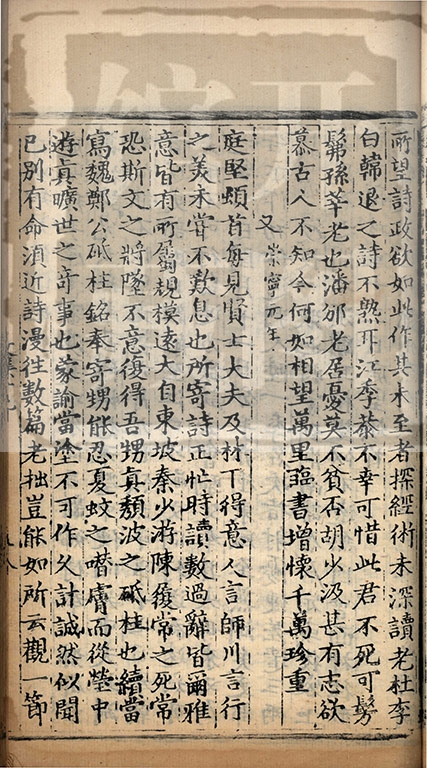 所望詩政欲如此作其未至者探經術未深讀老杜李
白韓退之詩不熟耳江季恭不幸可惜此君不死可髣
髴孫莘老也潘邠老居憂莫不貧否胡少汲甚有志欲
慕古人不知今何如相望萬里臨書增懷千萬珍重
又 崇寧元年
庭堅頓首每見賢士大夫及林下得意人言師川言行
之美未嘗不歎息也所寄詩正忙時讀數過辭皆爾雅
意皆有所屬規模遠大自東坡秦少游陳履常之死常
恐斯文之將墜不意復得吾甥真頹波之砥柱也續當
寫魏鄭公砥柱銘奉寄甥能忍夏蚊之噆膚而從瑩中
遊真曠世之奇事也蒙諭當塗不可作久計誠然似聞
已別有命須近詩漫往數篇老拙豈能如所云觀一節